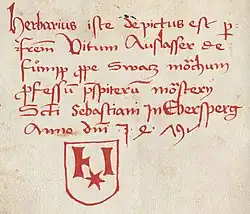 herbarius iste depictus est p
frem Vitum Auslasser de
fůmpp ꝓpe Swacz mo̅chum
ꝓfessu̅ p̄sbiteru̅ mo̅stery
Sc̅ti Sebastiani In Ebersperg
Anno dn̅i 7 9 l